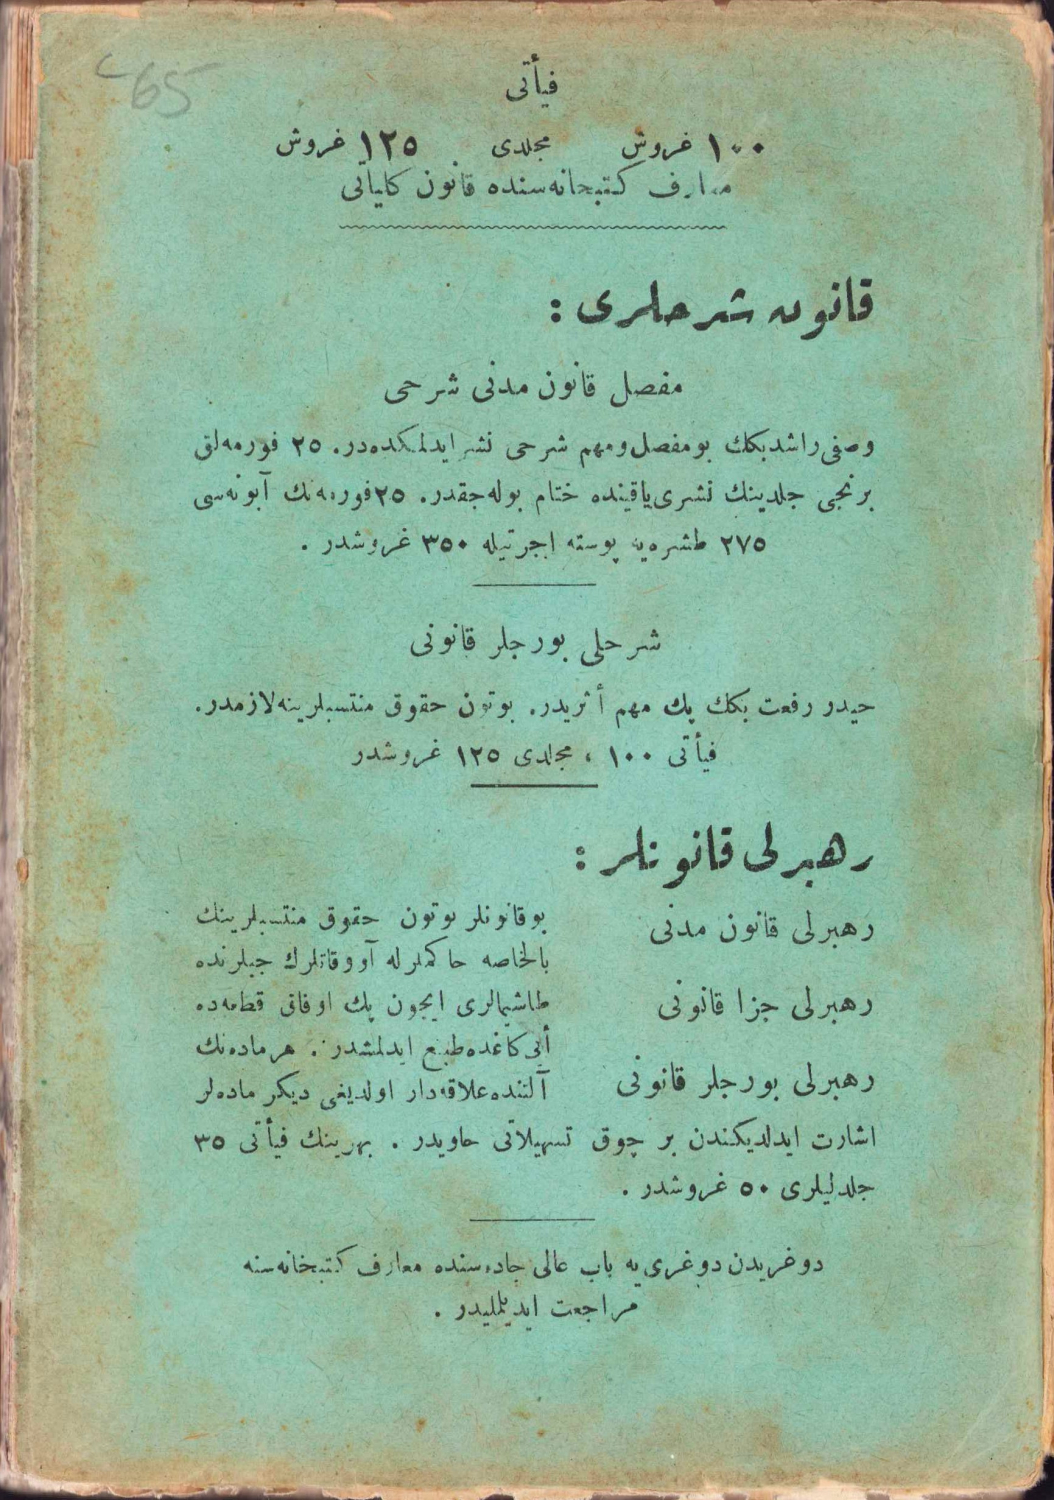 65
فیأتی
۱۰۰ غروش مجلدی ۱۲۵ غروش
معارف کتبخانه‌سنده قانون کلیاتی
قانون شرحلری :
مفصل قانون مدنی شرحی
وصفی راشد بکك بو مفصل و مهم شرحی نشر ایدلمکده‌در. ۲۵ فورمه‌لق
برنجی جلدینك نشری یاقینده ختام بوله‌جقدر. ۲۵ فورمه‌نك آبونه‌سی
۲۷۵ طشره‌یه پوسته اجرتیله ۳۵۰ غروشدر .
شرحلی بورجلر قانونی
حیدر رفعت بکك پك مهم أثریدر. بوتون حقوق منتسبلرینه لازمدر.
فیأتی ۱۰۰ ، مجلدی ۱۲۵ غروشدر
رهبرلی قانونلر :
رهبرلی قانون مدنی
رهبرلی جزا قانونی
رهبرلی بورجلر قانونی
بو قانونلر بوتون حقوق منتسبلرینك
بالخاصه حاکملرله آووقاتلرك جبلرنده
طاشیمالری ایچون پك اوفاق قطعه‌ده
أیی کاغده طبع ایدلمشدر . هر ماده‌نك
آلتنده علاقه‌دار اولدیغی دیکر ماده‌لر
اشارت ایدلدیکندن بر چوق تسهیلاتی حاویدر . بهرینك فیأتی ۳۵
جلدلیلری ۵۰ غروشدر .
دوغریدن دوغری‌یه باب عالی جاده‌سنده معارف کتبخانه‌سنه
مراجعت ایدیلملیدر .